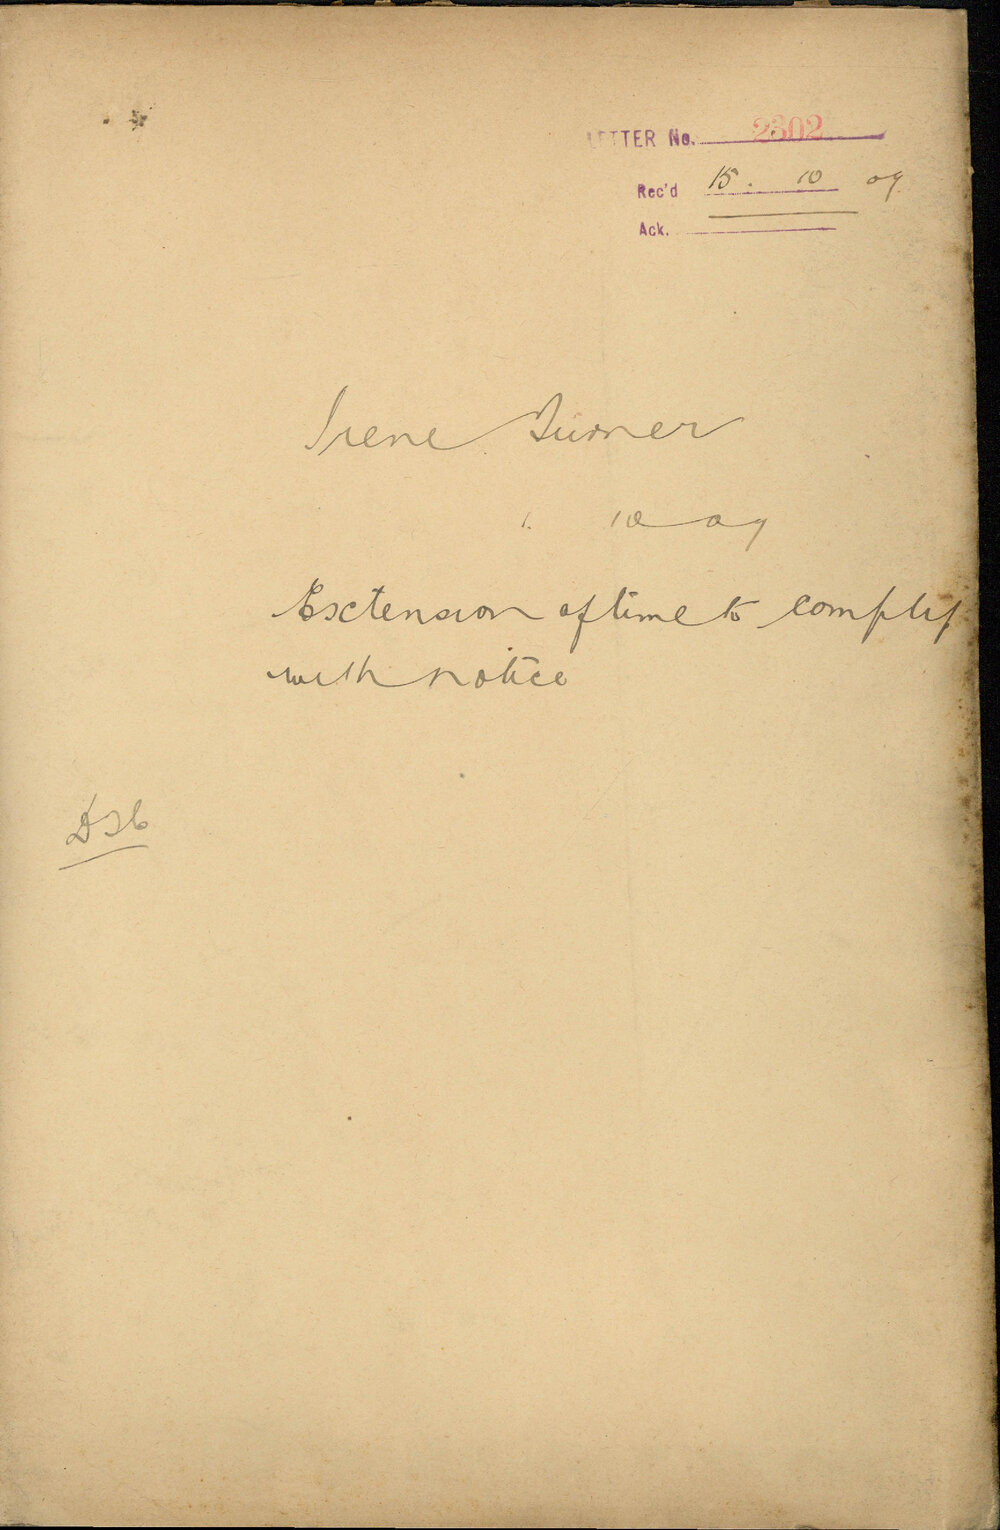 LETTER No. 2302
Rec'd 15. 10 09
Ack.
Irene Turner
1. 10 09
Extension of time to comply
with notice